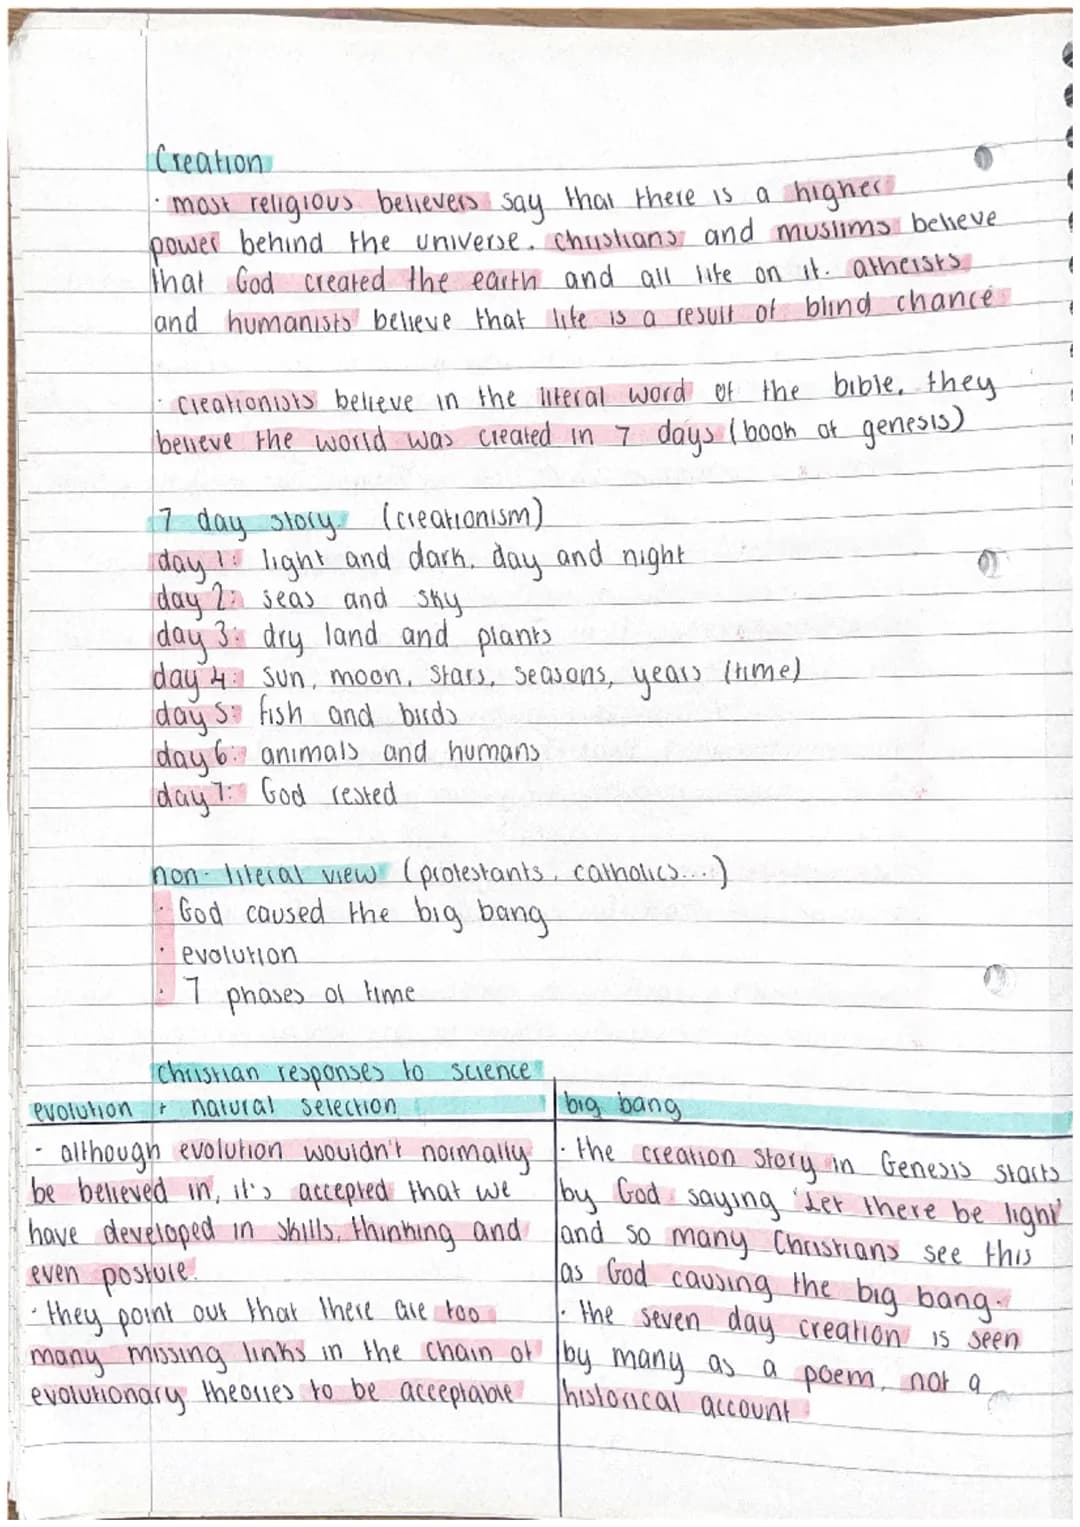 Creation
· most religious believers say that there is a higher
power behind the universe. christians and muslims believe
that God created the earth and all life on it. atheists
and humanists believe that life is a result of blind chance
· creationists believe in the literal word of the bible. they
believe the world was created in 7 days (book of genesis)
7 day story. (creationism)
day 1: light and dark, day and night
day 2: seas and sky
day 3: dry land and plants
day 4: sun, moon, stars, seasons, years (time)
day 5: fish and birds
day 6: animals and humans
day 7: God rested
non-literal view (protestants, catholics...)
· God caused the big bang
· evolution
· 7 phases of time
christian responses to science
evolution + natural selection
- although evolution wouldn't normally
be believed in, it's accepted that we
have developed in skills, thinking and
even posture.
· they point out that there are too
many missing links in the chain of
evolutionary theories to be acceptable
big bang
· the creation story in Genesis starts
by God saying 'Let there be light'
and so many Christians see this
as God causing the big bang.
· the seven day creation is seen
by many as a poem, not a
historical account